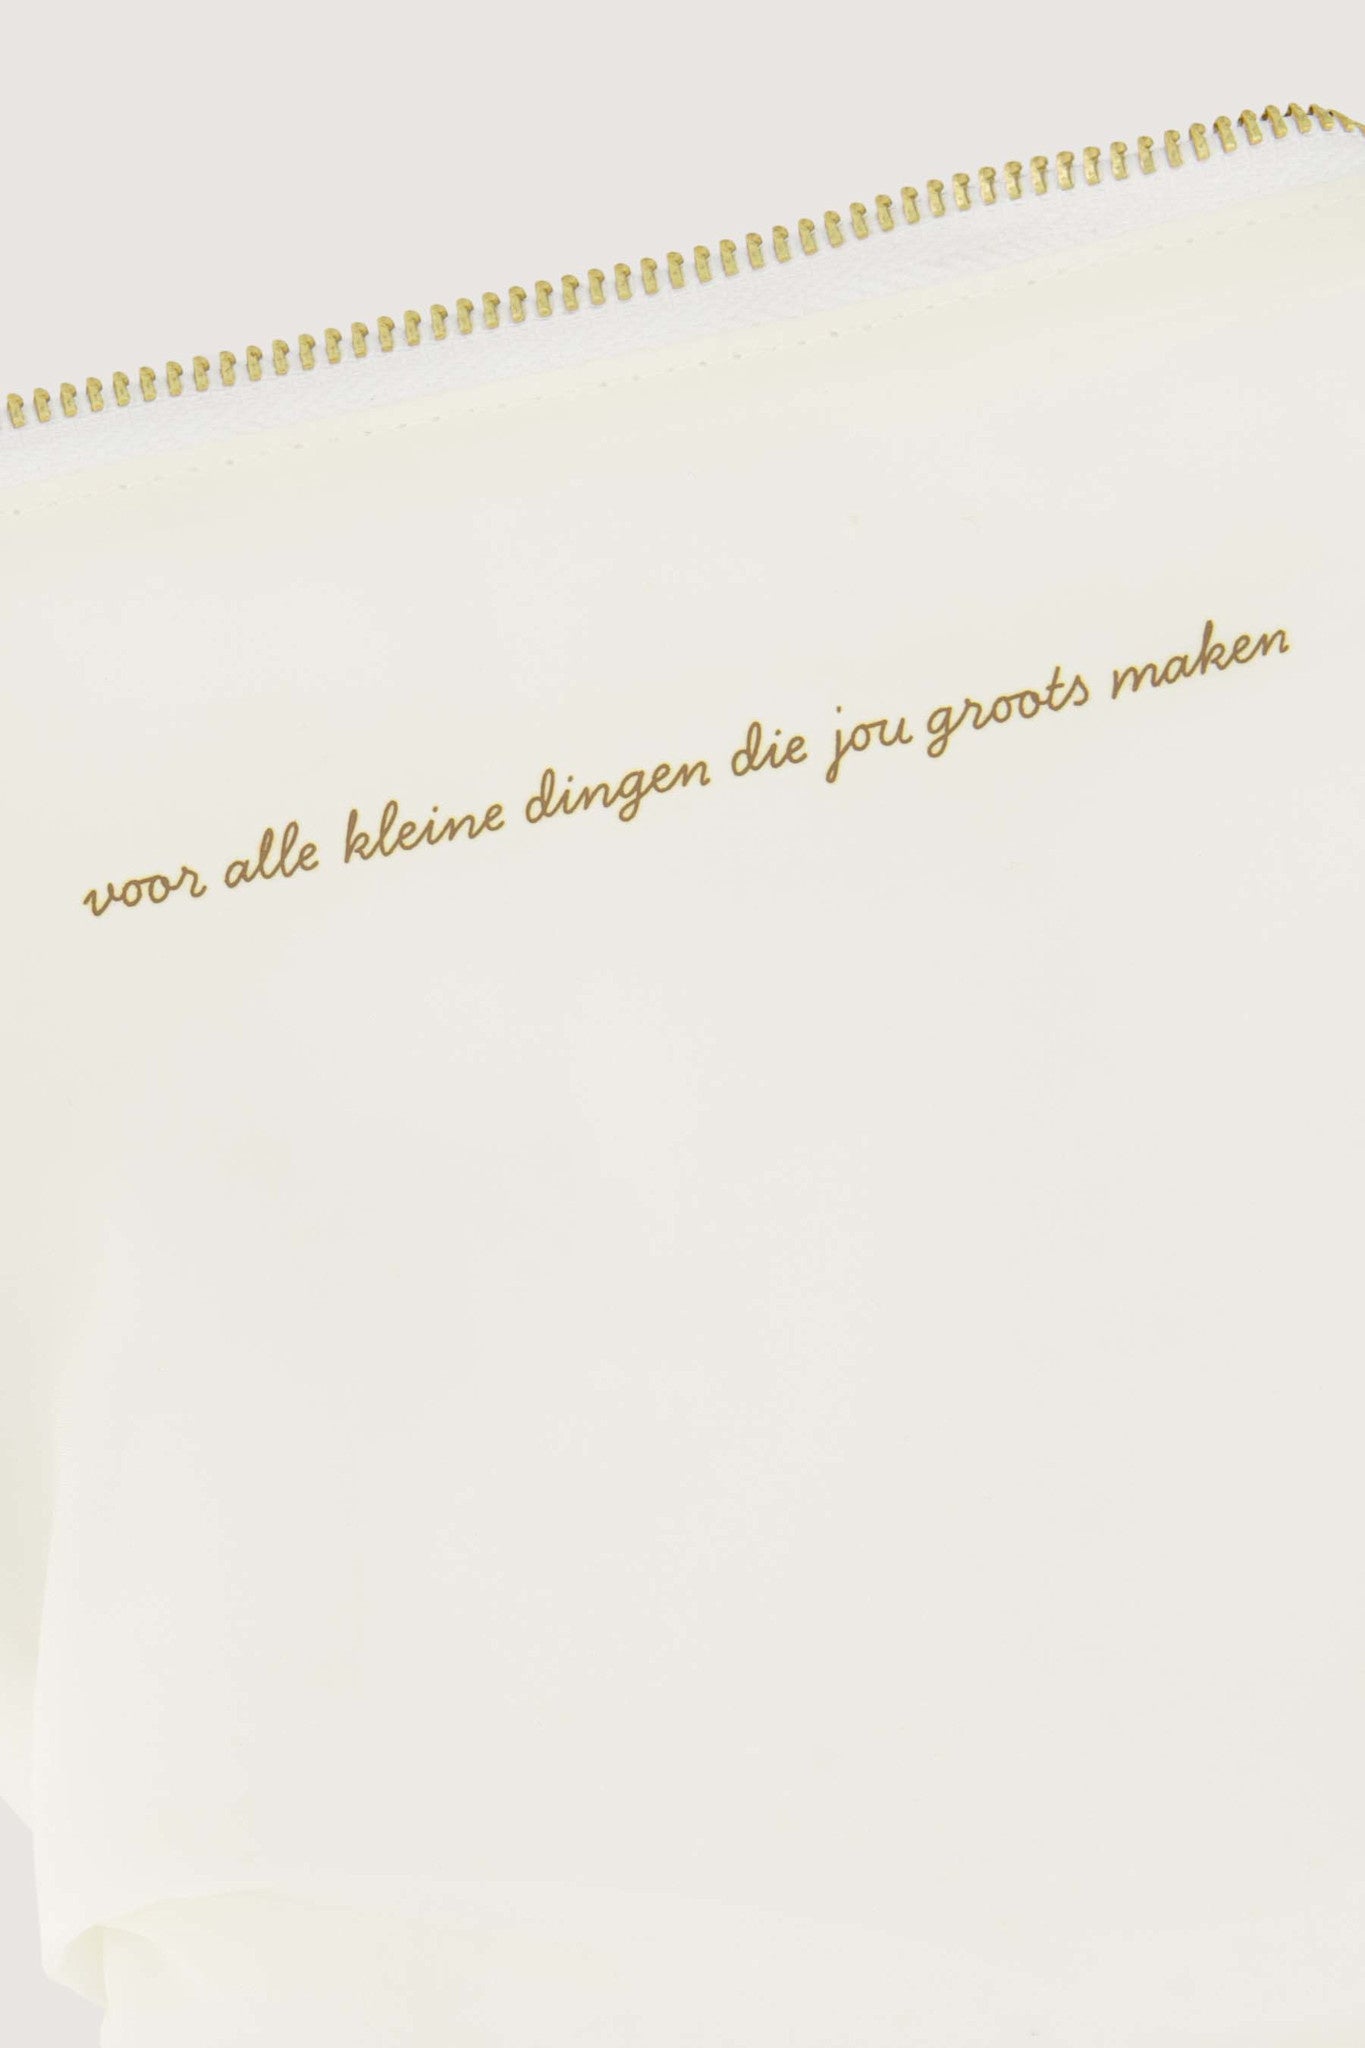 voor alle kleine dingen die jou groots maken